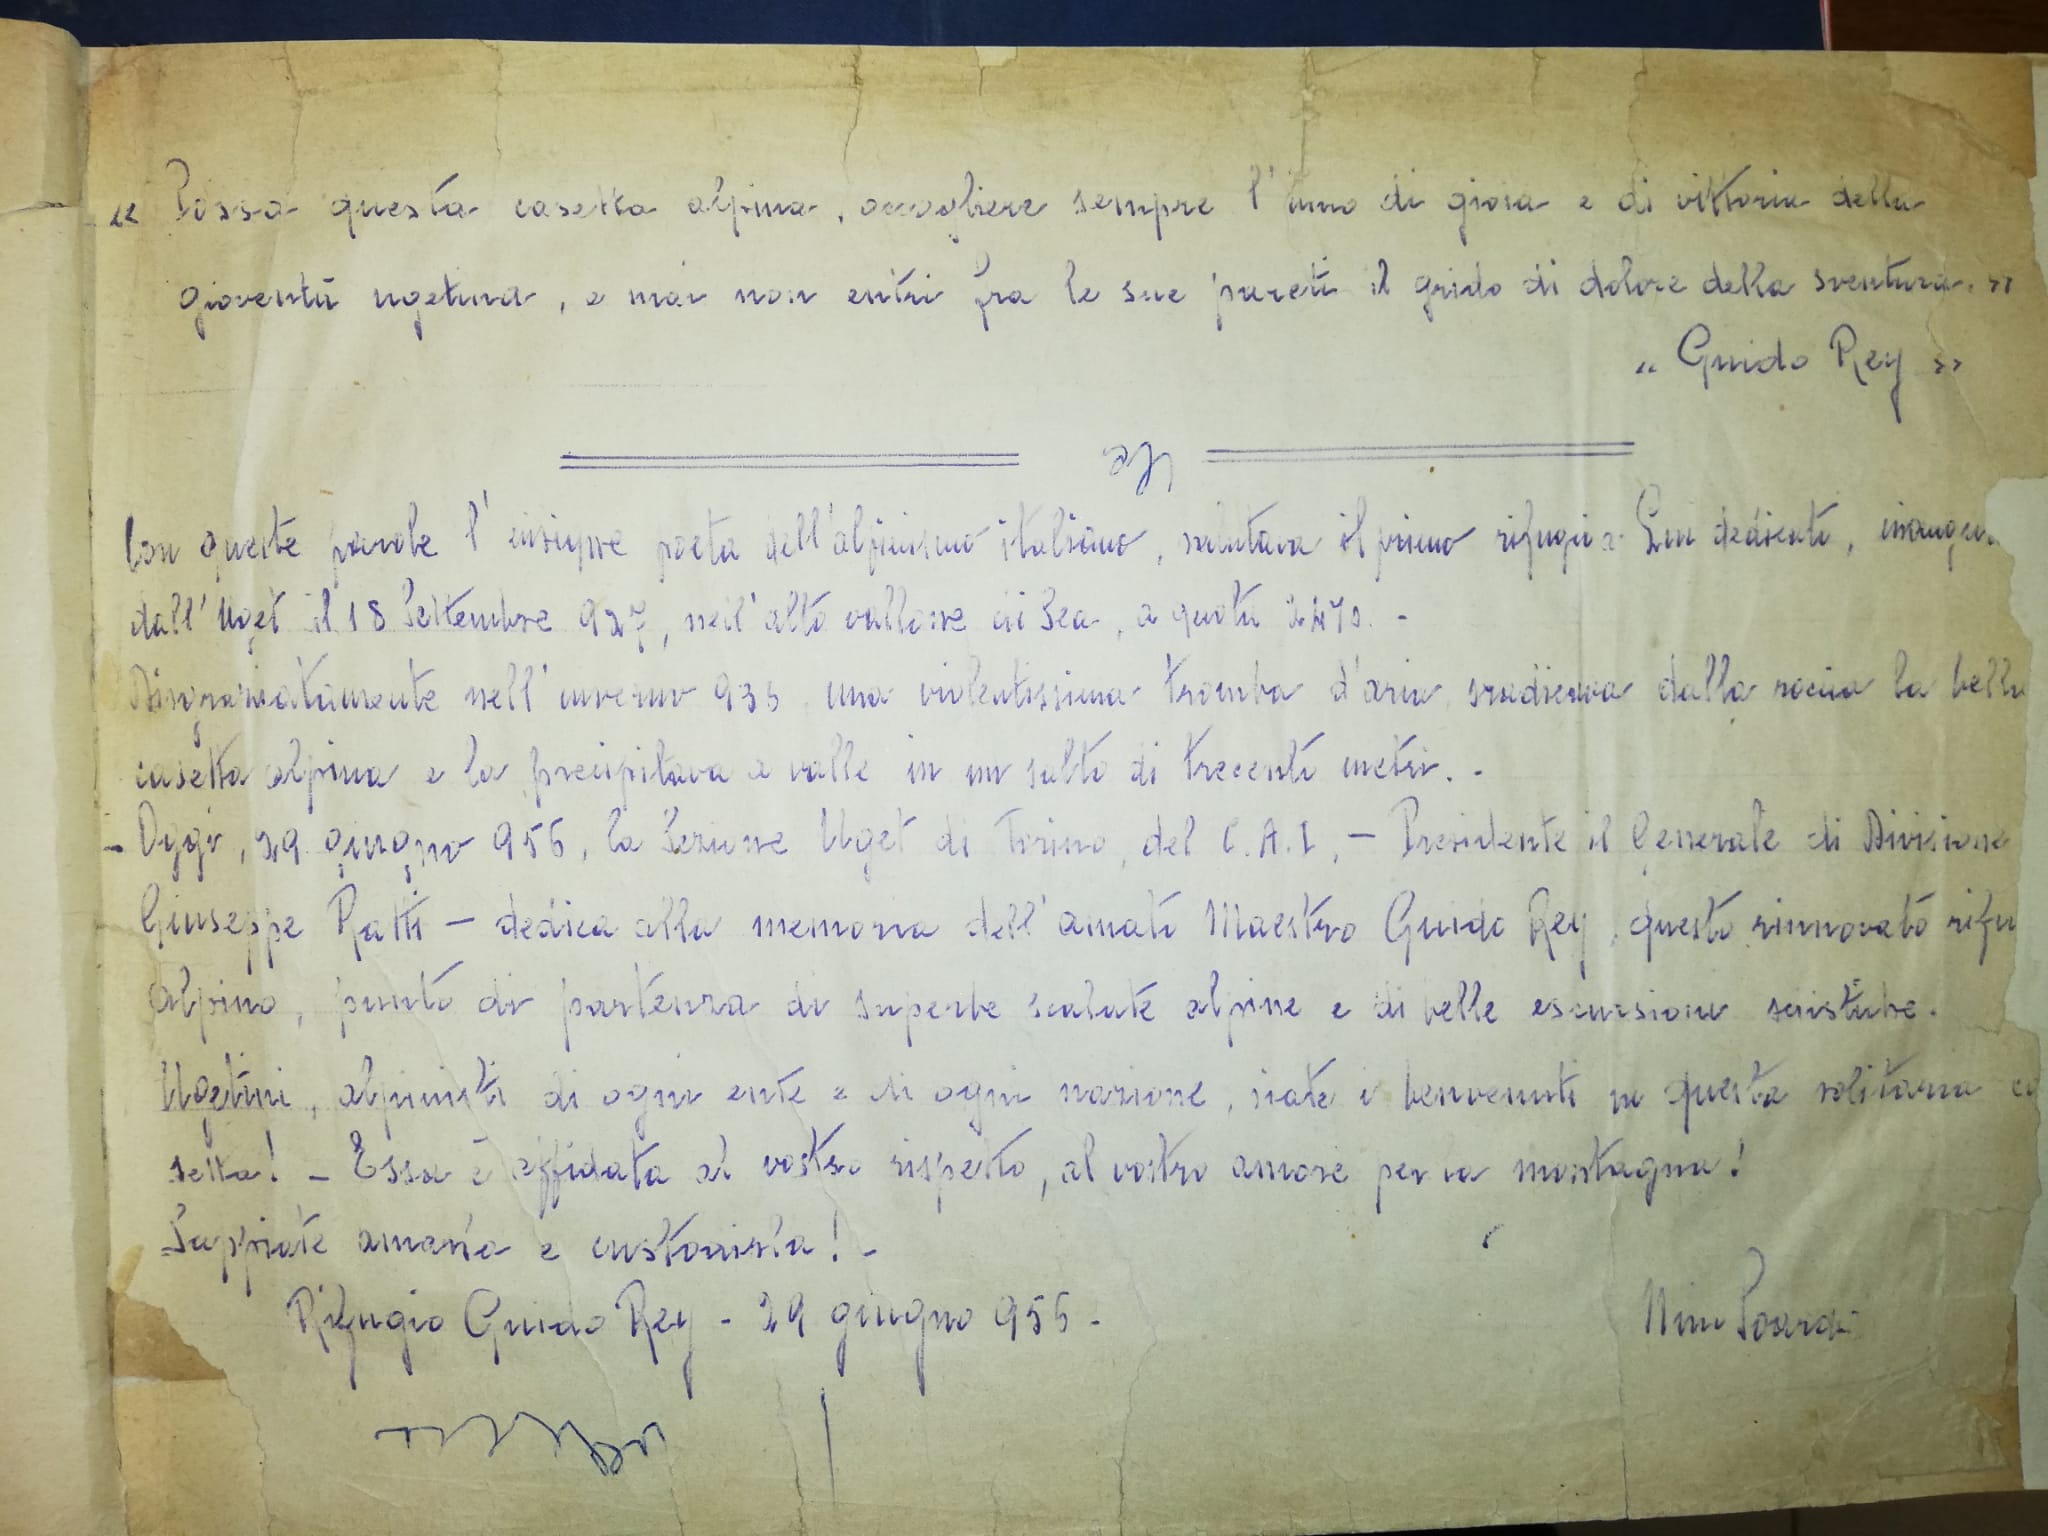 « Possa questa casetta alpina, accogliere sempre l'inno di gioia e di vittoria della
gioventù ugetina, e mai non entri fra le sue pareti il grido di dolore della sventura. »
« Guido Rey »
Con queste parole l'insigne poeta dell'alpinismo italiano, salutava il primo rifugio a Lui dedicato,
dall'Uget il 18 Settembre 927, nell'alto vallone di Sea, a quota
Disgraziatamente nell'inverno una violentissima tromba d'aria, sradicava dalla roccia la bella
casetta alpina e la precipitava a valle in un salto di trecento metri. -
- Oggi, 29 giugno 955, la Sezione Uget di Torino, del C.A.I, - Presidente il Generale di Divisione
Giuseppe Ratti - dedica alla memoria dell'amato Maestro Guido Rey, questo rinnovato rifu
alpino, punto di partenza di superbe scalate alpine e di belle escursioni sciistiche.
Ugetini, alpinisti di ogni ente e di ogni nazione, siate i benvenuti in questa solitaria ca
setta! - Essa è affidata al vostro rispetto, al vostro amore per la montagna!
Sappiate amarla e custodirla! -
Rifugio Guido Rey - 29 giugno 955 -